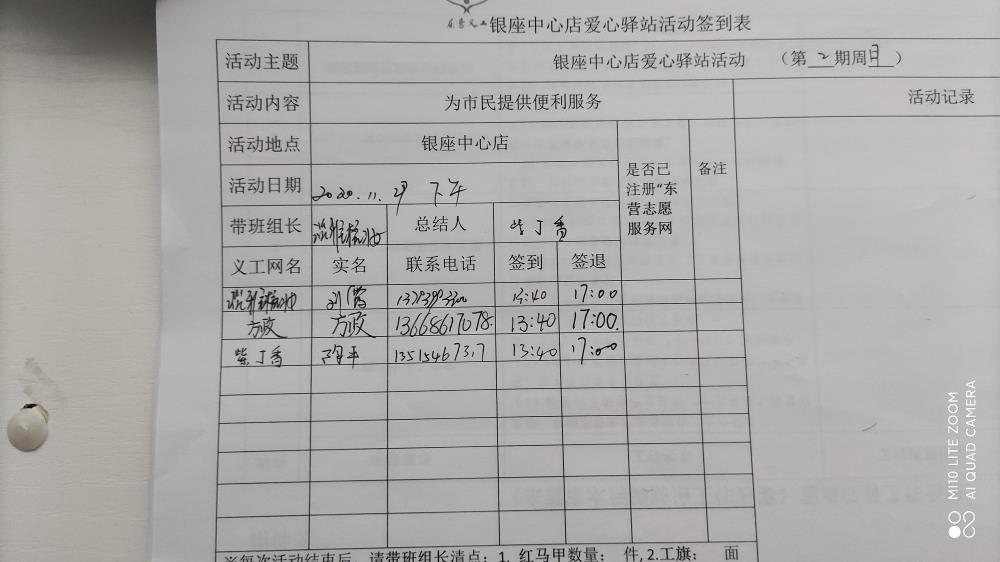 东营义工
银座中心店爱心驿站活动签到表
活动主题 银座中心店爱心驿站活动 （第2期周日）
活动内容 为市民提供便利服务 活动记录
活动地点 银座中心店 是否已注册“东营志愿服务网 备注
活动日期 2020.11.29 下午
带班组长 总结人 紫丁香
义工网名 实名 联系电话 签到 签退
13:40 17:00
方政 方政 13668617078 13:40 17:00
紫丁香 13515467317 13:40 17:00
※每次活动结束后，请带班组长清点：1. 红马甲数量： 件, 2.工旗： 面
MI 10 LITE ZOOM
AI QUAD CAMERA